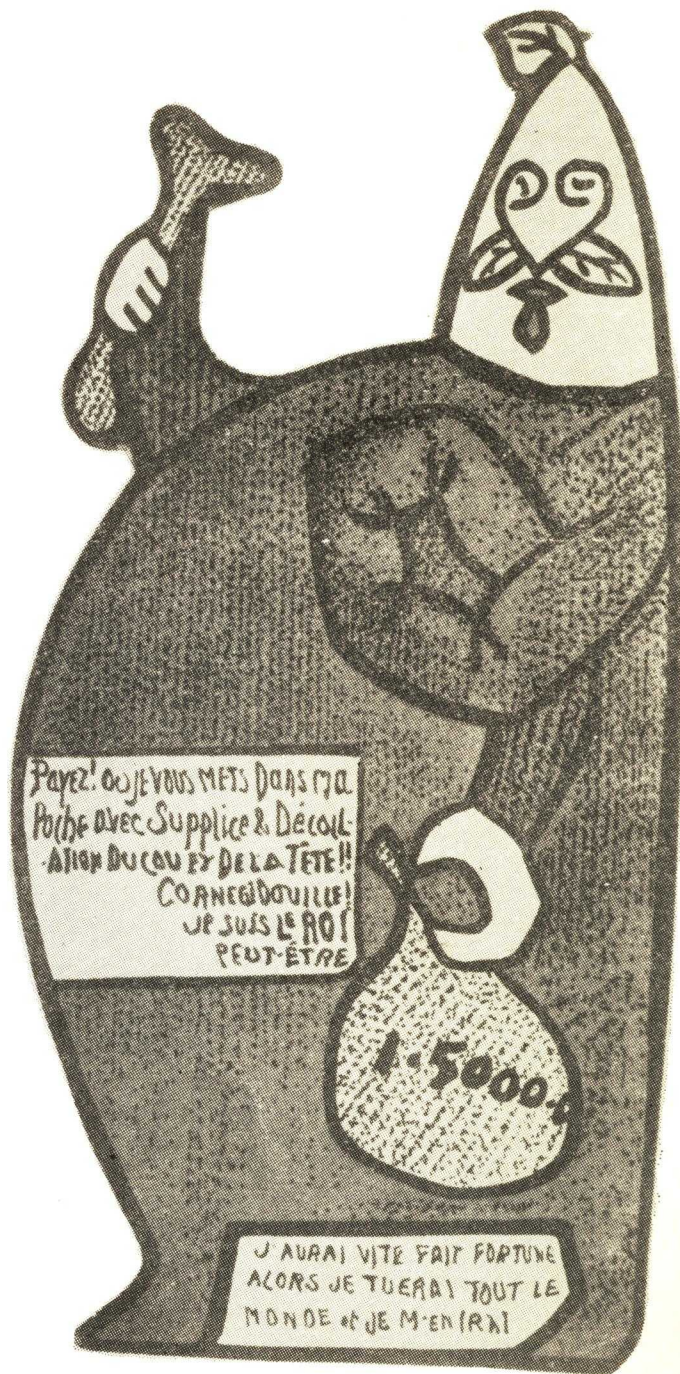 Payez! ou je vous mets dans ma
Poche avec Supplice & Décoll-
-ation du cou et de la Tete!!
CORNEGIDOUILLE!
JE SUIS LE ROI
PEUT-ÊTRE
1.5000.
J'AURAI VITE FAIT FORTUNE
ALORS JE TUERAI TOUT LE
MONDE et JE M'EN IRAI